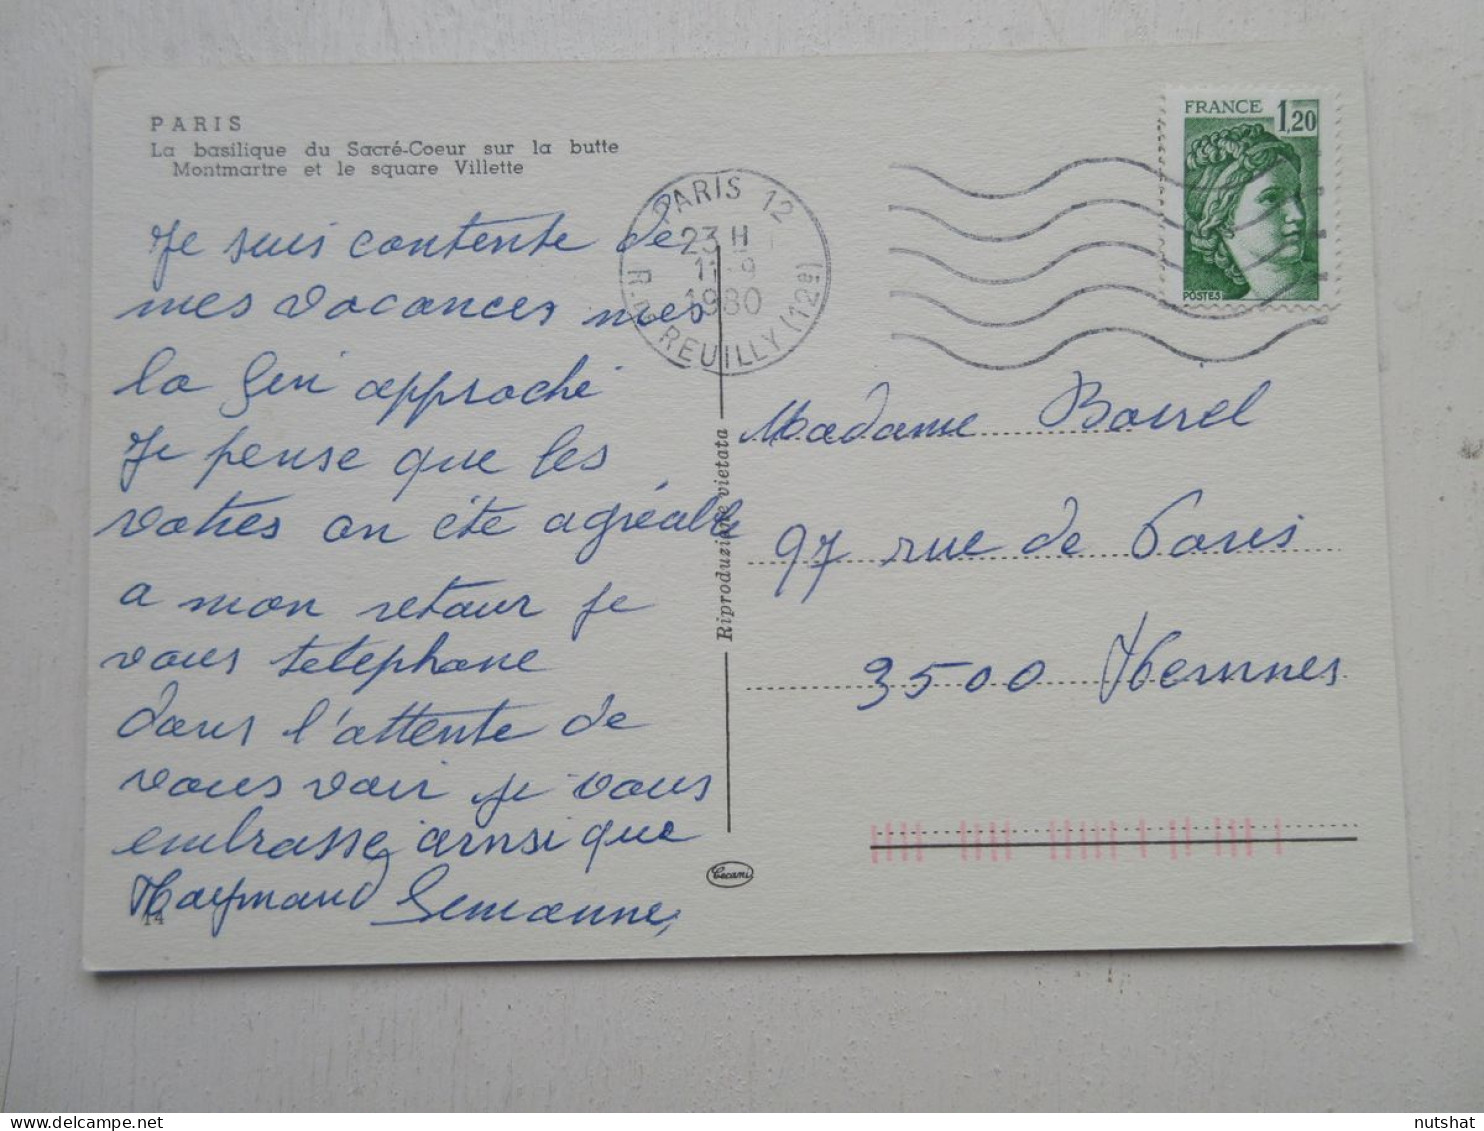 PARIS
La basilique du Sacré-Coeur sur la butte
Montmartre et le square Villette
FRANCE 1,20
POSTES
PARIS 12
23 H
11-9
1980
R. DE REUILLY (12e)
Je suis contente de
mes vacances mes
la fin approche
Je pense que les
votres on été agréable
a mon retour je
vous telephone
dans l'attente de
vous voir je vous
embrasse ainsi que
Raymand
14
Riproduzione vietata
Cecami
Madame Boirel
97 rue de Paris
3500 Rennes
nutshat